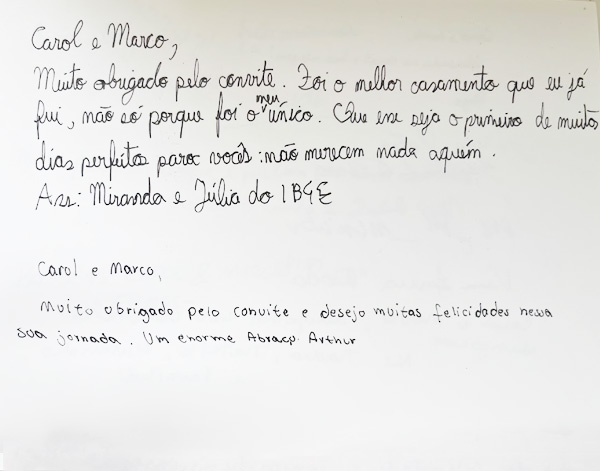 Carol e Marco,
Muito obrigado pelo convite. Foi o melhor casamento que eu já
fui, não só porque foi o meu único. Que esse seja o primeiro de muitos
dias perfeitos para vocês: não merecem nada aquém.
Ass: Miranda e Júlia do IBGE
Carol e Marco,
Muito obrigado pelo convite e desejo muitas felicidades nessa
sua jornada. Um enorme Abraço. Arthur